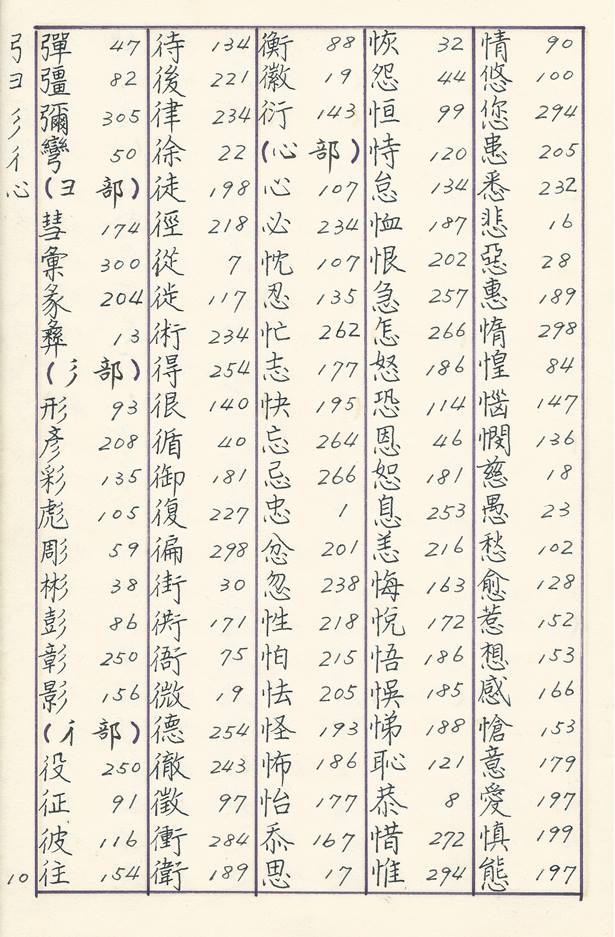 弓
彐
彡
彳
心
彈 47
彊 82
彌 305
彎 50
(彐 部)
彗 174
彙 300
彖 204
彝 13
(彡 部)
形 93
彥 208
彩 135
彪 105
彫 59
彬 38
彭 86
彰 250
影 156
(彳 部)
役 250
征 91
彼 116
往 154
待 134
後 221
律 234
徐 22
徒 198
徑 218
從 7
徙 117
術 234
得 254
很 140
循 40
御 181
復 227
徧 298
街 30
衖 171
衙 75
微 19
德 254
徹 243
徵 97
衝 284
衛 189
衡 88
徽 19
衍 143
(心 部)
心 107
必 234
忱 107
忍 135
忙 262
志 177
快 195
忘 264
忌 266
忠 1
忿 201
忽 238
性 218
怕 215
怯 205
怪 193
怖 186
怡 177
忝 167
思 17
恢 32
怨 44
恒 99
恃 120
怠 134
恤 187
恨 202
急 257
怎 266
怒 186
恐 114
恩 46
恕 181
息 253
恙 216
悔 163
悅 172
悟 186
悞 185
悌 188
恥 121
恭 8
惜 272
惟 294
情 90
悠 100
您 294
患 205
悉 232
悲 16
惡 28
惠 189
惰 298
惶 84
惱 147
憫 136
慈 18
愚 23
愁 102
愈 128
惹 152
想 153
感 166
愴 153
意 179
愛 197
慎 199
態 197
10